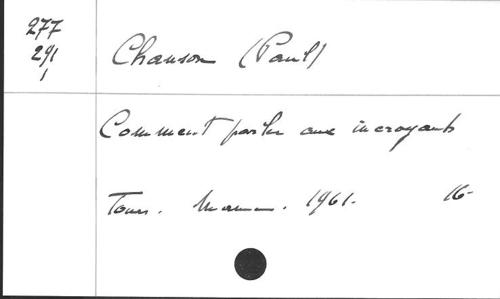 277
291
1
Chanson (Paul)
Comment parler aux incroyants
Tours. Mame. 1961. 16